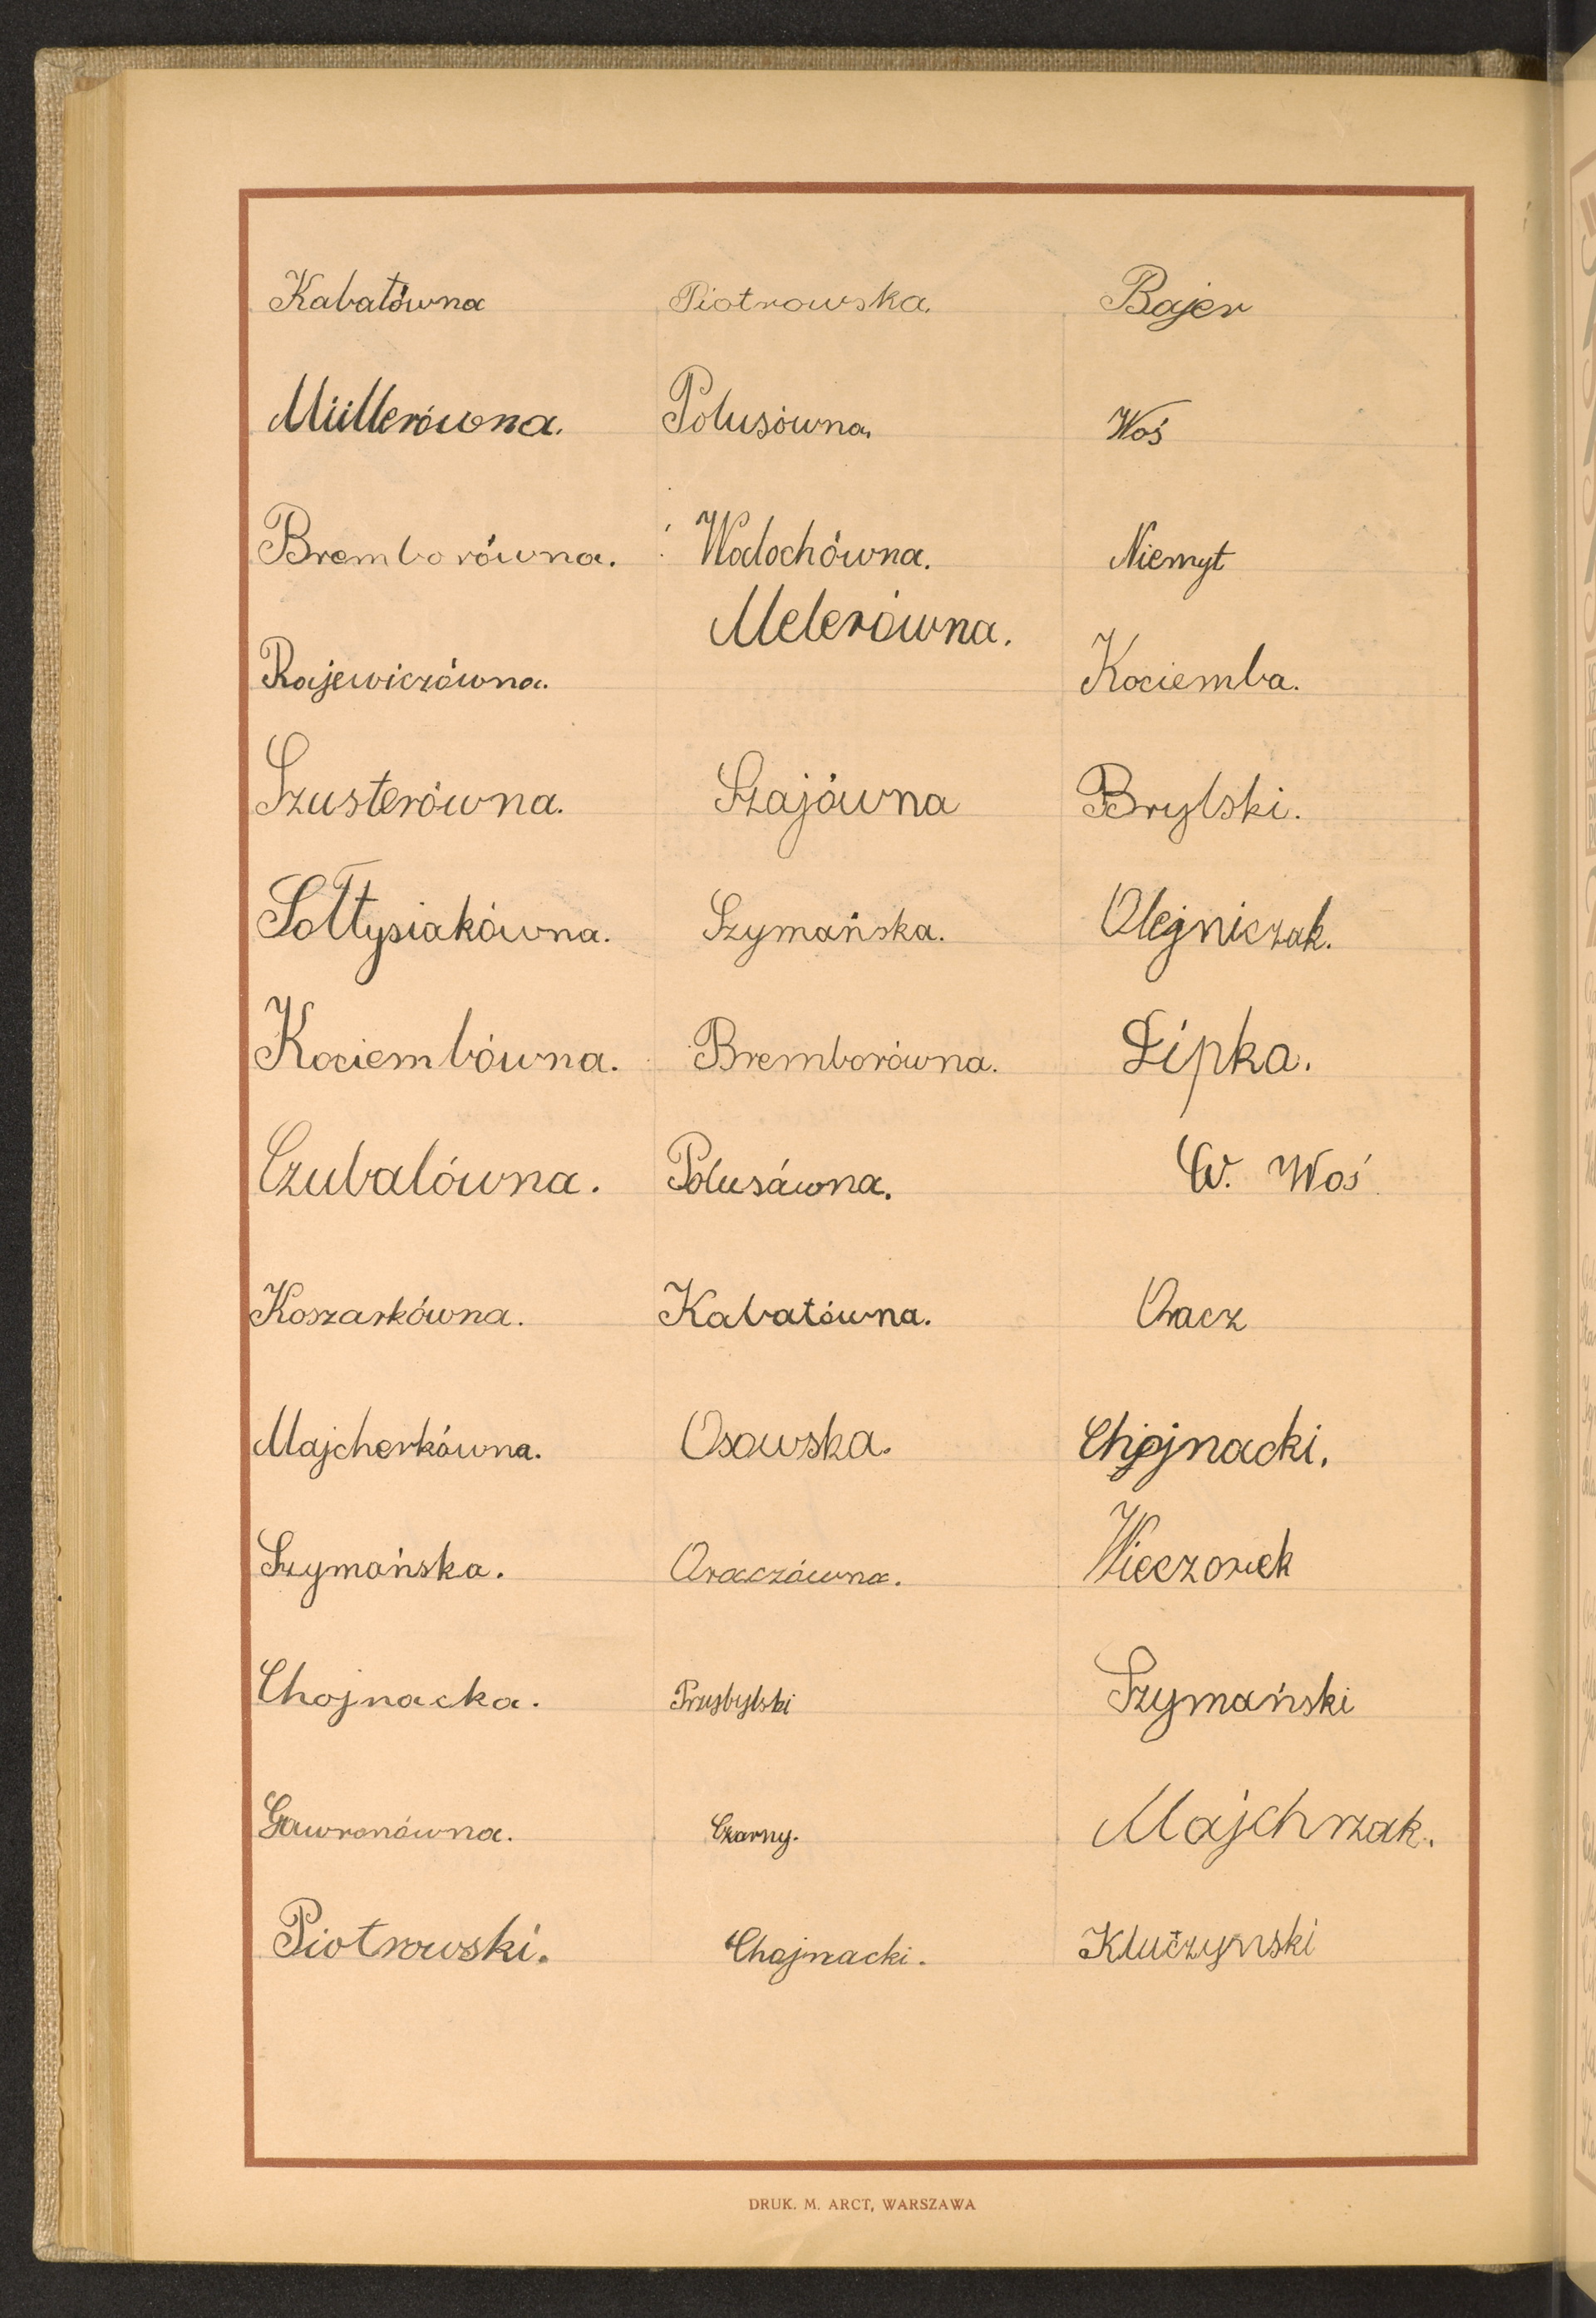 Kabatówna Piotrowska. Bajer
Müllerówna. Polusówna. Woś
Bremborówna. Wolochówna. Niemyt
Melerówna.
Rajewiczówna. Kociemba.
Szusterówna. Szajówna Brylski.
Sołtysiakówna. Szymańska. Olejniczak.
Kociembówna. Bremborówna. Lipka.
Czubalówna. Polusówna. W. Woś
Koszarkówna. Kabatówna. Oracz
Majcherkówna. Osowska. Chojnacki.
Szymańska. Oraczówna. Wieczorek
Chojnacka. Przybylski Szymański
Gawronówna. Czarny. Majchrzak.
Piotrowski. Chojnacki. Kluczynski
DRUK. M. ARCT, WARSZAWA